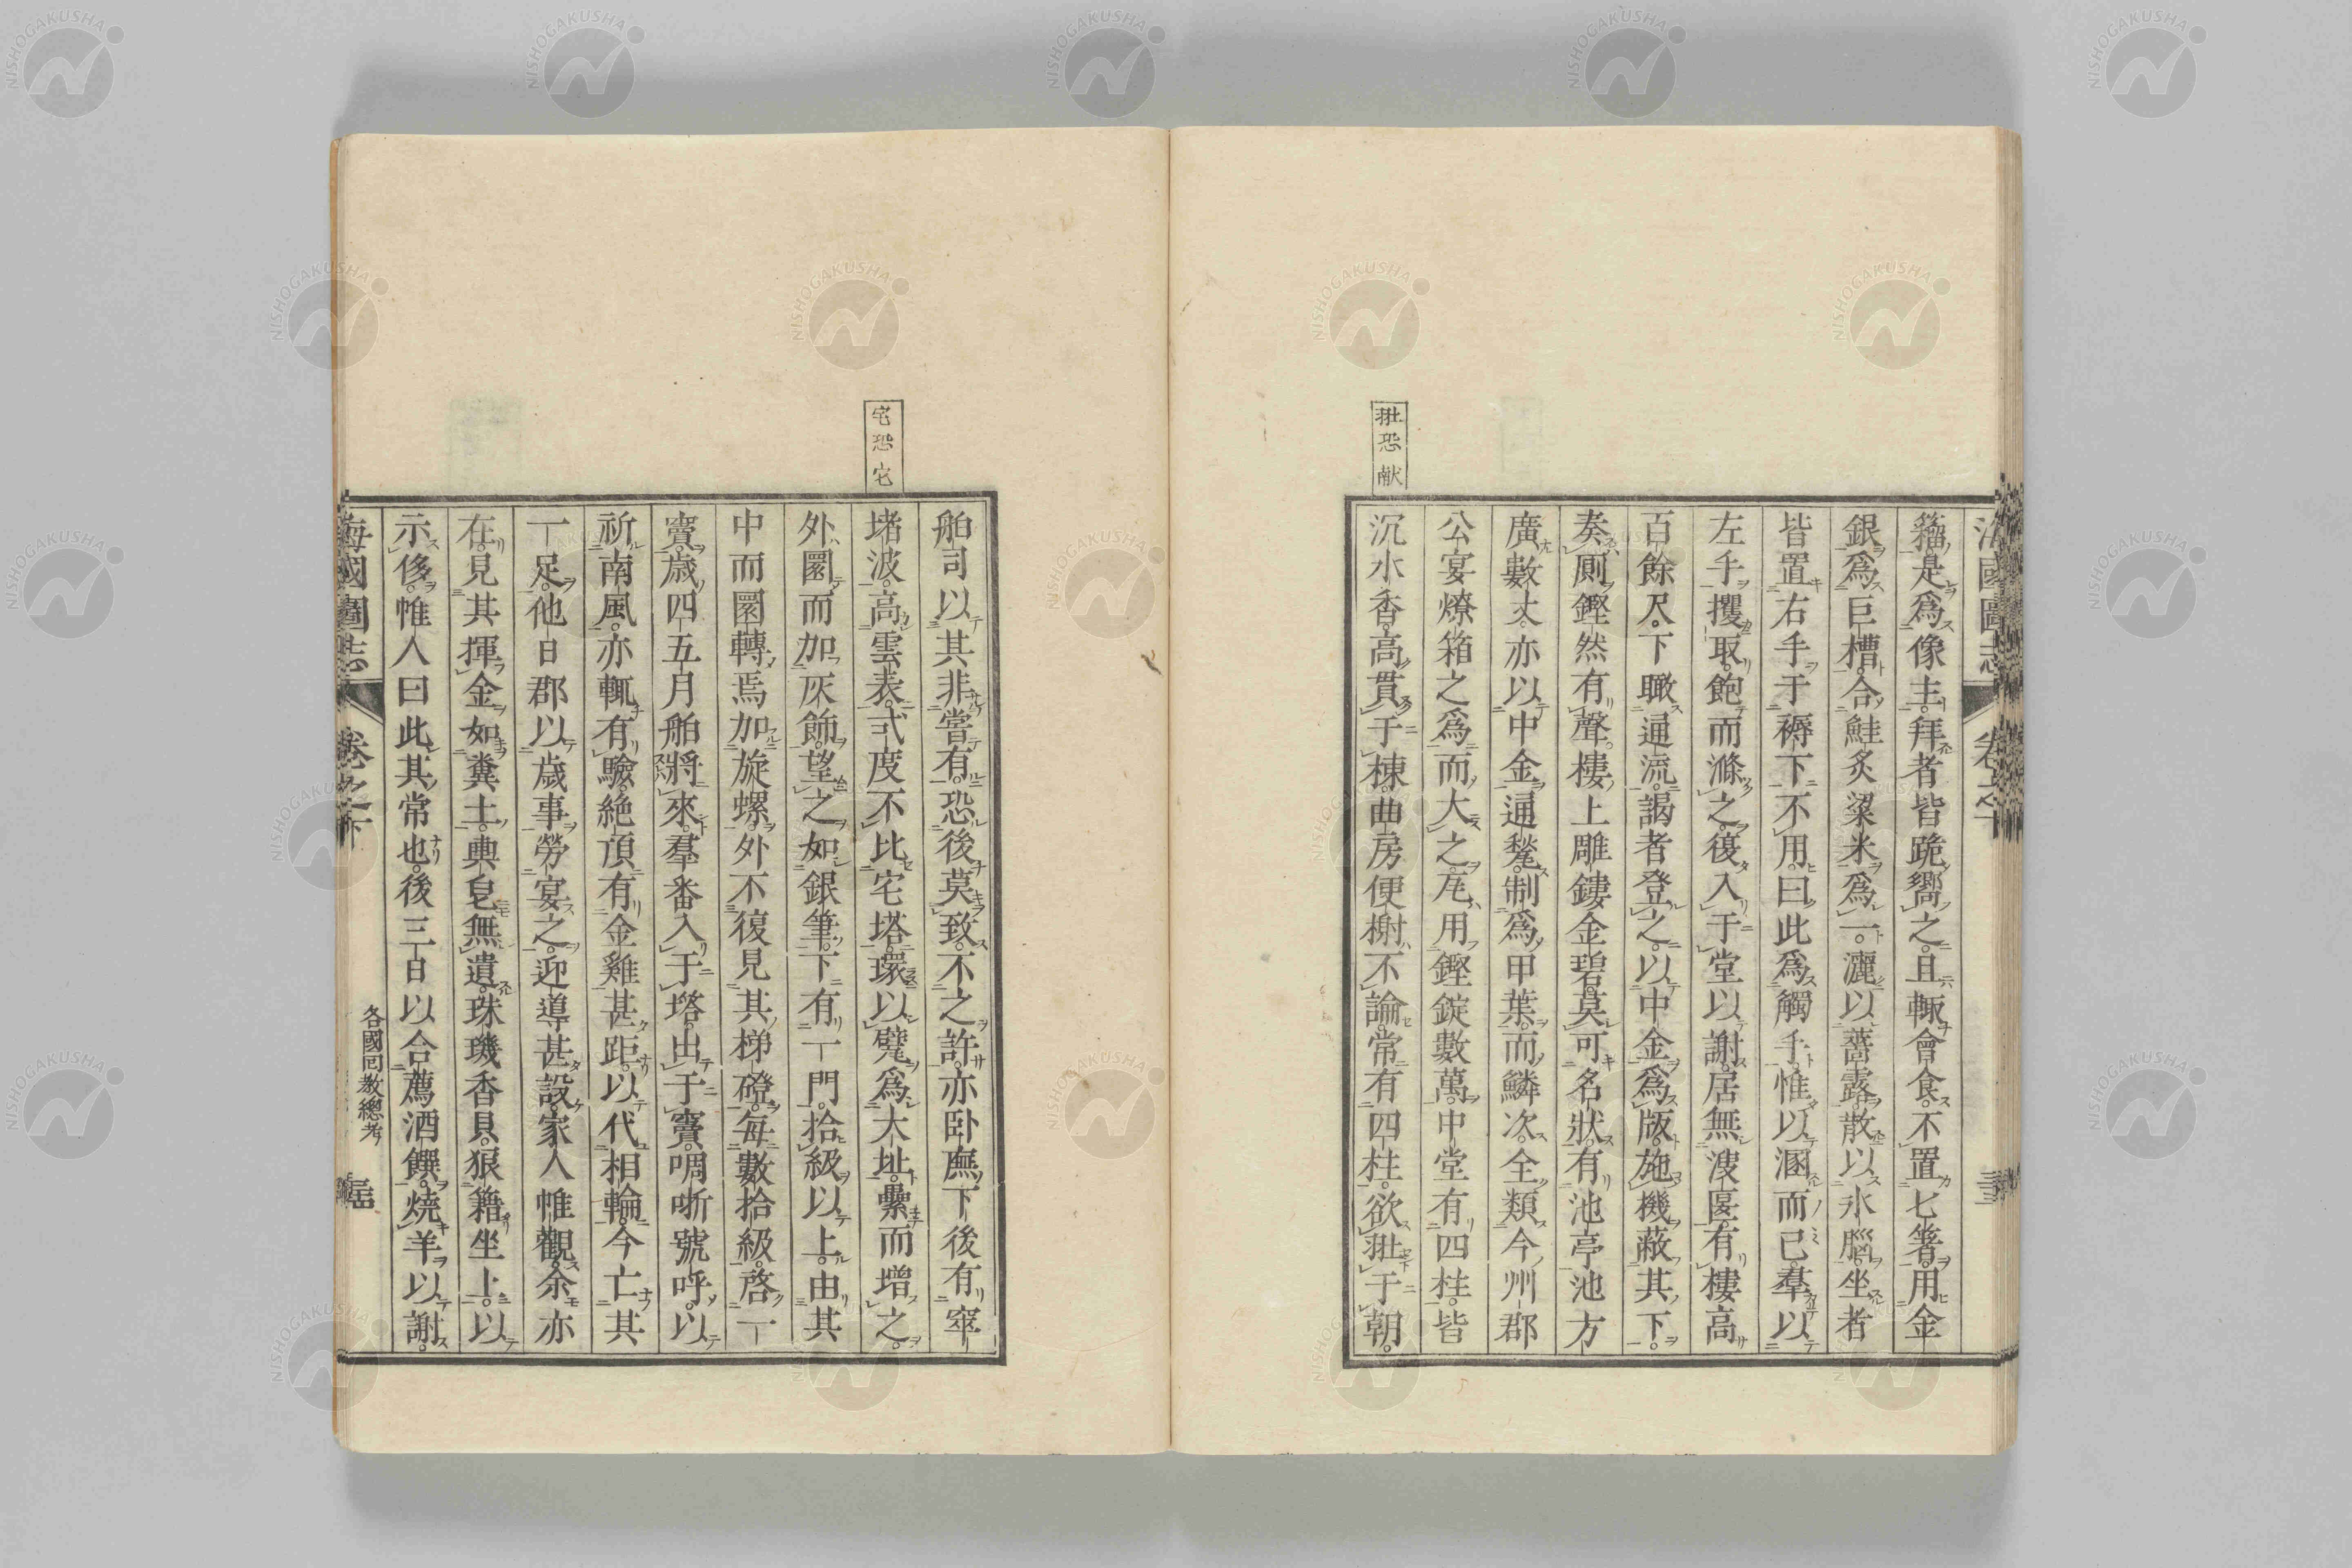 翄恐献
籀是爲像主拜者皆跪嚮之且輙會食不置匕箸用金
銀爲巨槽合鮭炙粱米爲一灑以薔露散以氷腦坐者
皆置右手于褥下不用曰此爲觸手惟以溷而已羣以
左手攫取飽而滌之復入于堂以謝居無溲匽有樓高
百餘尺下瞰通流謁者登之以中金爲版施機蔽其下
奏厠鏗然有聲樓上雕鏤金碧莫可名狀有池亭池方
廣數丈亦以中金通甃制爲甲葉而鱗次全類今州郡
公宴燎箱之爲而大之凡用鏗錠數萬中堂有四柱皆
沉水香高貫于棟曲房便榭不論常有四柱欲于朝
宅恐它
舶司以其非嘗有恐後莫致不之許亦卧廡下後有窣
堵波高雲表式度不比宅塔環以甓爲大址纍而增之
外圜而加灰飾望之如銀筆下有一門拾級以上由其
中而圜轉焉加旋螺外不復見其梯磴每數拾級啓一
竇歲四五月舶將來羣番入于塔出于竇啁哳號呼以
祈南風亦輒有驗絶頂有金雞甚距以代相輪今亡其
一足他日郡以歲事勞宴之迎導甚設家人惟觀余亦
在見其揮金如糞土輿皂無遺珠璣香貝狼籍坐上以
示侈帷人曰此其常也後三日以合薦酒饌燒羊以謝
海國圖志 卷之下
各國回教總考